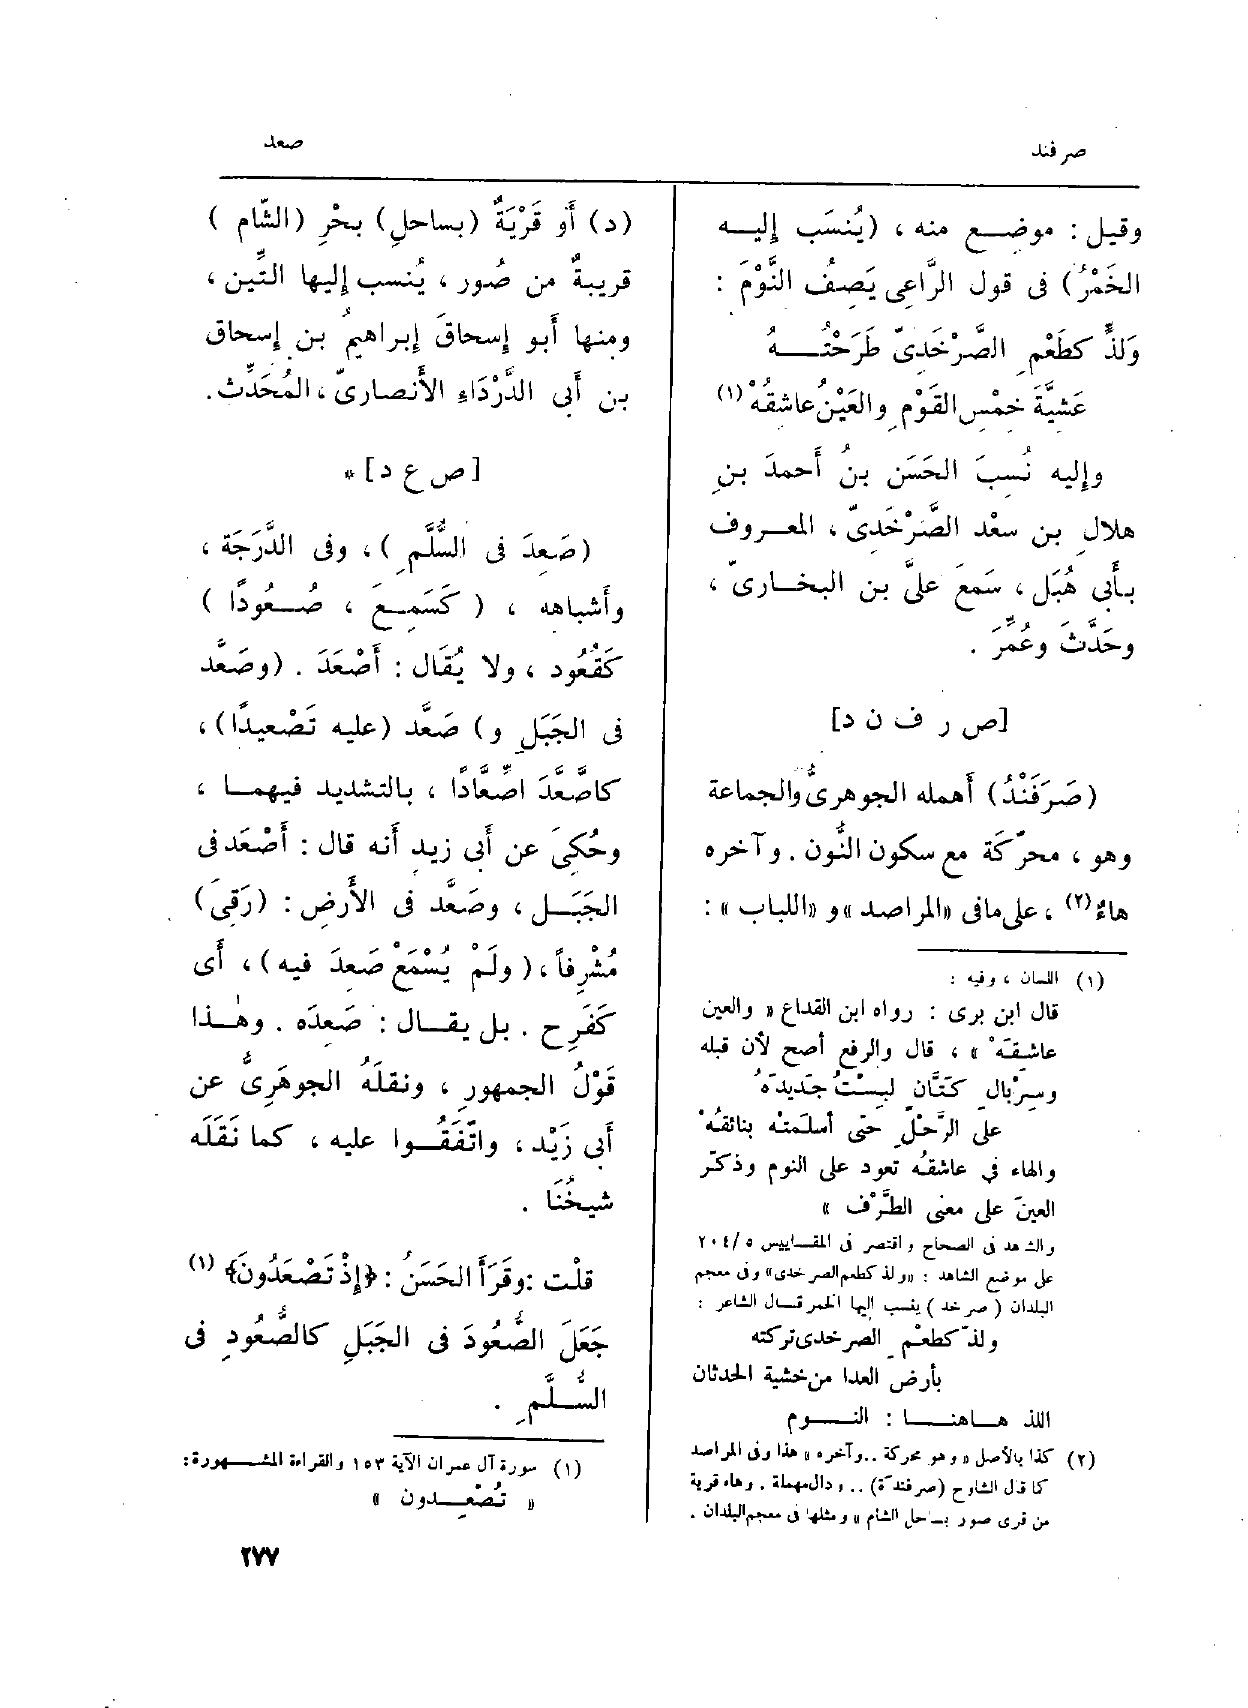 صرفند
صعد
وقيل : موضع منه ، (يُنسَب إليه
الخَمْرُ) فى قول الرَّاعِى يَصِفُ النَّوْمَ :
وَلَذٍّ كطَعْمِ الصَّرْخَدِىّ طَرَحْتُهُ
عَشِيَّةَ خِمْسِ القَوْمِ والعَيْنُ عاشِقُهْ (١)
وإليه نُسِبَ الحَسَن بنُ أَحمدَ بنِ
هلالِ بن سعْد الصَّرْخَدِىّ ، المعروف
بأَبى هُبَل ، سَمِعَ علىَّ بن البخارىّ ،
وحَدَّثَ وعُمِّرَ .
[ص ر ف ن د]
(صَرَفَنْدُ) أَهمله الجوهرىُّ والجماعة
وهو ، محرّكة مع سكون النُّون . وآخره
هاءٌ (٢) ، على مافى «المراصد» و «اللباب» :
(١) اللسان ، وفيه :
قال ابن برى : رواه ابن القداع « والعين
عاشقَهْ » ، قال والرفع أصح لأن قبله
وسِرْبالِ كَتَّانٍ لبسْتُ جَديدَهُ
على الرَّحْلِ حتى أسلمَتْه بنائقُهْ
والهاء فى عاشقُه تعود على النوم وذكّر
العينَ على معنى الطَّرْف »
والشاهد فى الصحاح واقتصر فى المقاييس ٥/٢٠٤
على موضع الشاهد : «ولذ كطعم الصرخدى» وفى معجم
البلدان ( صرخد ) ينسب إليها الخمر قال الشاعر :
ولذّ كطعْمِ الصرخدى تركته
بأرض العدا من خشية الحدثان
اللذ هاهنا : النوم
(٢) كذا بالأصل « وهو محركة .. وآخره » هذا وفى المراصد
كما قال الشارح (صرفندَة) .. ودال مهملة . وهاء قرية
من قرى صور بساحل الشام » ومثلها فى معجم البلدان .
(د) أَو قَرْيَةٌ (بساحلِ) بحْرِ (الشّام )
قريبةٌ من صُور ، يُنسب إليها التِّين ،
ومنها أَبو إسحاقَ إبراهيمُ بن إسحاق
بن أَبى الدَّرْدَاءِ الأَنصارىّ ، المُحَدِّث .
[ص ع د] *
(صَعِدَ فى السُّلَّمِ ) ، وفى الدَّرَجَة ،
وأَشباهه ، ( كَسَمِعَ ، صُعُودًا )
كقُعُود ، ولا يُقَال : أَصْعَدَ . (وصَعَّد
فى الجَبَلِ و) صَعَّد (عليه تَصْعِيدًا) ،
كاصَّعَّدَ اصِّعَّادًا ، بالتشديد فيهما ،
وحُكِىَ عن أَبى زيدٍ أَنه قال : أَصْعَد فى
الجَبَل ، وصَعَّد فى الأَرضِ : (رَقِىَ)
مُشْرِفاً ، ( ولَمْ يُسْمَعْ صَعِدَ فيه ) ، أَى
كفَرِح . بل يقال : صَعِدَه . وهٰذا
قَوْلُ الجمهورِ ، ونقلَهُ الجوهَرِىُّ عن
أَبى زَيْد ، واتّفَقُوا عليه ، كما نَقَلَه
شيخُنَا .
قلْت : وقَرَأَ الحَسَنُ : ﴿إِذْ تَصْعَدُونَ﴾ (١)
جَعَلَ الصُّعُودَ فى الجَبَلِ كالصُّعُودِ فى
السُّلَّمِ .
(١) سورة آل عمران الآية ١٥٣ والقراءة المشهورة:
« تُصْعِدون »
٢٧٧